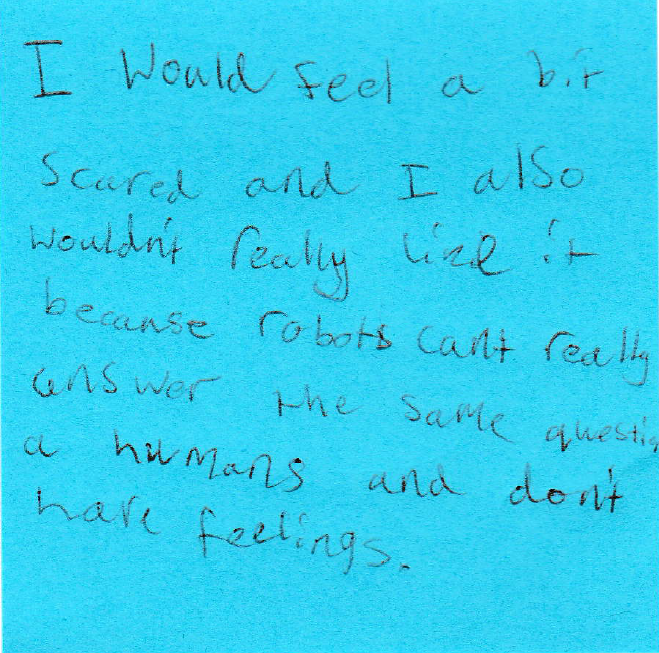 I Would feel a bit
scared and I also
wouldn't really like it
because robots cant really
answer the same questio
a humans and don't
have feelings.